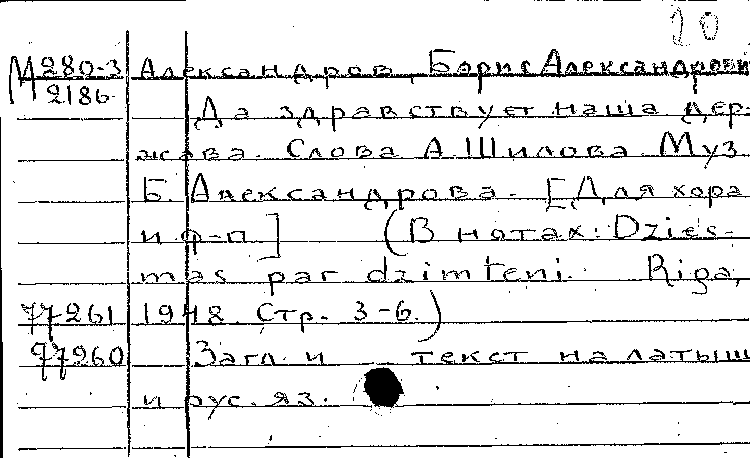 20
М 280-3 Александров, Борис Александрови
2186
Да здравствует наша дер-
жава. Слова А. Шилова. Муз.
Б. Александрова. [Для хора
и ф-п] (В нотах: Dzies-
mas par dzimteni. Riga,
77261 1948. Стр. 3-6.)
77260 Загл. и текст на латыш
и рус. яз.